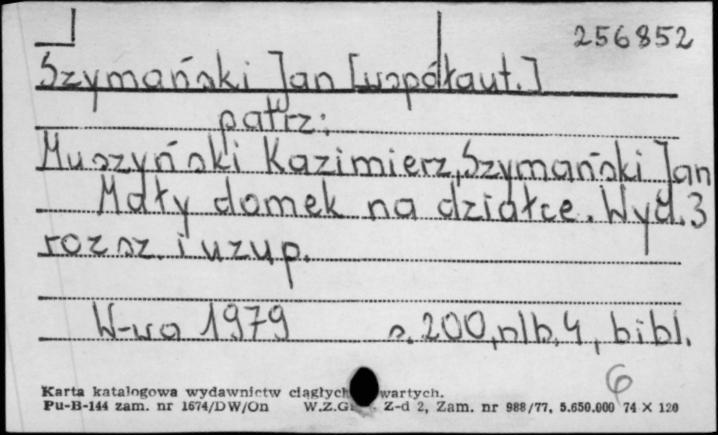 256852
Szymański Jan [współaut.]
patrz:
Muszyński Kazimierz, Szymański Jan
Mały domek na działce. Wyd. 3
rozsz. i uzup.
W-wa 1979 s. 200, nlb. 4, bibl.
6
Karta katalogowa wydawnictw ciągłych wartych.
Pu-B-144 zam. nr 1674/DW/On W.Z.G. Z-d 2, Zam. nr 988/77, 5.650.000 74 X 120